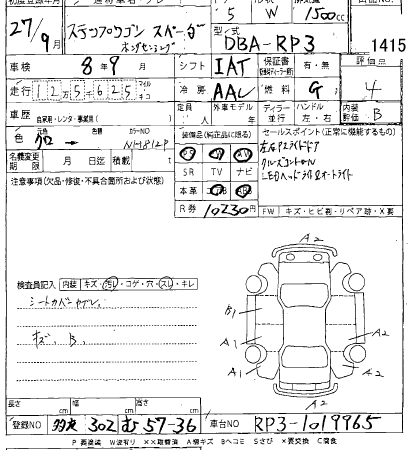 5 W 1500cc
27/9月 ステップワゴン スパーダ
ホンダセンシング
型ノ式
DBA-RP3
1415
車検 8年9月
シフト IAT
保証書 有・無
評価点
4
走行 125625 マイル キロ
冷房 AAC
燃料 G
車歴 自家用・レンタ・事業用( )
定員 人
外車モデル 年
ディーラー 並行
ハンドル 左・右
内装評価 B
色 元色 クロ → 色
カラーNO NH812P
名義変更期限 月 日迄
積載 t
装備品(純正品に限る)
SR TV ナビ
本革 エアB AB
R券 10230円
セールスポイント(正常に機能するもの)
左右Pスライドドア
クルーズコントロール
LEDヘッドライト&オートライト
注意事項(欠品・修復・不具合箇所および状態)
FW キズ・ヒビ割・リペア跡・X要
検査員記入 内装 キズ・汚レ・コゲ・穴・スレ・キレ
シートカバーヤブレ、
キズ、B、
A2
B1
A1
A2
A1
A2
A2
長さ cm 幅 cm 高さ cm
登録NO 302 む 57-36
車台NO RP3-1019965
P要塗装 W波有り XX取替済 A線キズ Bヘコミ Sさび X要交換 C腐食